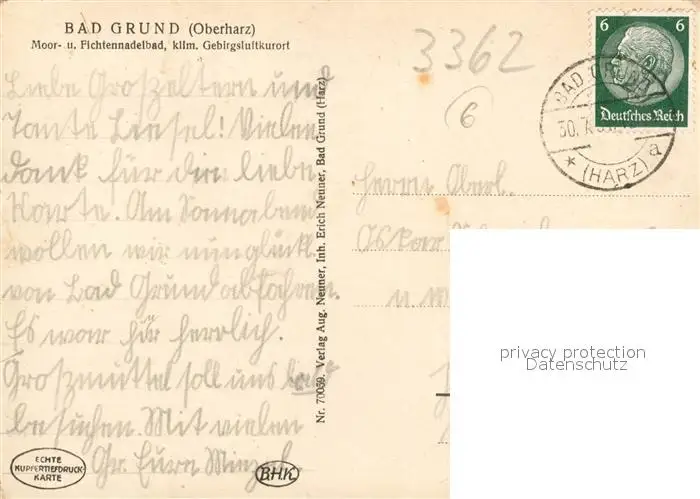 BAD GRUND (Oberharz)
Moor- u. Fichtennadelbad, klim. Gebirgsluftkurort
Liebe Großeltern und
Tante Liesel! Vielen
dank für die liebe
Karte. Am Sonnabend
wollen wir
von Bad Grund abfahren.
Es war hier herrlich.
Großmuttel soll uns bald
besuchen. Mit vielen
Gr. Eure
ECHTE
KUPFERTIEFDRUCK-
KARTE
B.H.K.
Nr. 70059. Verlag Aug. Neuner, Inh. Erich Neuner, Bad Grund (Harz)
3362
6
6 6
Deutsches Reich
BAD GRUND
30.7.
(HARZ) a
Herrn Oberl.
Oskar
privacy protection
Datenschutz